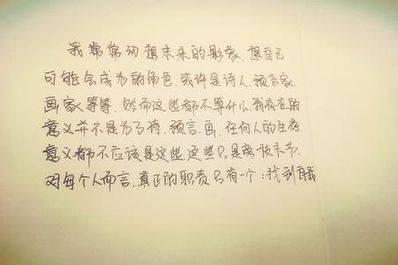 我常常幻想未来的影象,想自己
可能会成为的角色,或许是诗人,预言家,
画家等等,然而这些都不算什么,我存在的
意义并不是为了诗,预言,画,任何人的生存
意义都不应该是这些,这些只是旁枝末节,
对每个人而言,真正的职责只有一个:找到自我